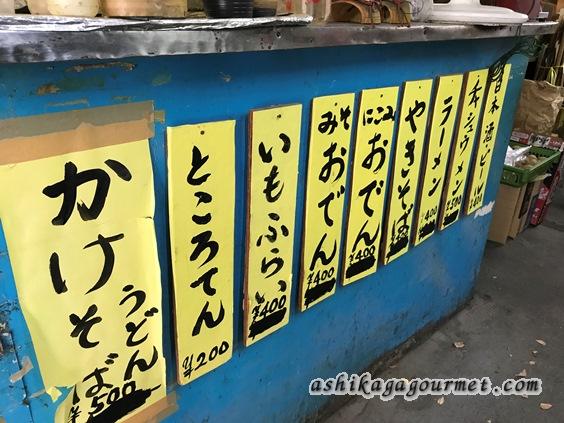 かけそば
うどん
¥500
ところてん
¥200
いもふらい
¥400
みそ
おでん
¥400
にこみ
おでん
¥400
やきそば
ラーメン
¥400
チャシュウメン
日本酒・ビール
ashikagagourmet.com